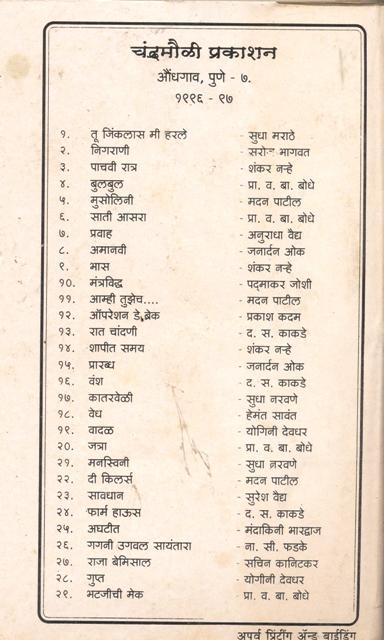 चंद्रमौळी प्रकाशन
औंधगाव, पुणे - ७.
१९९६ - ९७
१. तू जिंकलास मी हरले - सुधा मराठे
२. निगराणी - सरोज भागवत
३. पाचवी रात्र - शंकर नऱ्हे
४. बुलबुल - प्रा. व. बा. बोधे
५. मुसोलिनी - मदन पाटील
६. साती आसरा - प्रा. व. बा. बोधे
७. प्रवाह - अनुराधा वैद्य
८. अमानवी - जनार्दन ओक
९. भास - शंकर नऱ्हे
१०. मंत्रविद्ध - पद्माकर जोशी
११. आम्ही तुझेच.... - मदन पाटील
१२. ऑपरेशन डे ब्रेक - प्रकाश कदम
१३. रात चांदणी - द. स. काकडे
१४. शापीत समय - शंकर नऱ्हे
१५. प्रारब्ध - जनार्दन ओक
१६. वंश - द. स. काकडे
१७. कातरवेळी - सुधा नरवणे
१८. वेध - हेमंत सावंत
१९. वादळ - योगिनी देवधर
२०. जत्रा - प्रा. व. बा. बोधे
२१. मनस्विनी - सुधा नरवणे
२२. दी किलर्स - मदन पाटील
२३. सावधान - सुरेश वैद्य
२४. फार्म हाऊस - द. स. काकडे
२५. अघटीत - मंदाकिनी भारद्वाज
२६. गगनी उगवल सायंतारा - ना. सी. फडके
२७. राजा बेमिसाल - सचिन कानिटकर
२८. गुप्त - योगीनी देवधर
२९. भटजीची मेक - प्रा. व. बा. बोधे
अपूर्व प्रिंटींग अँन्ड बाईडिंग